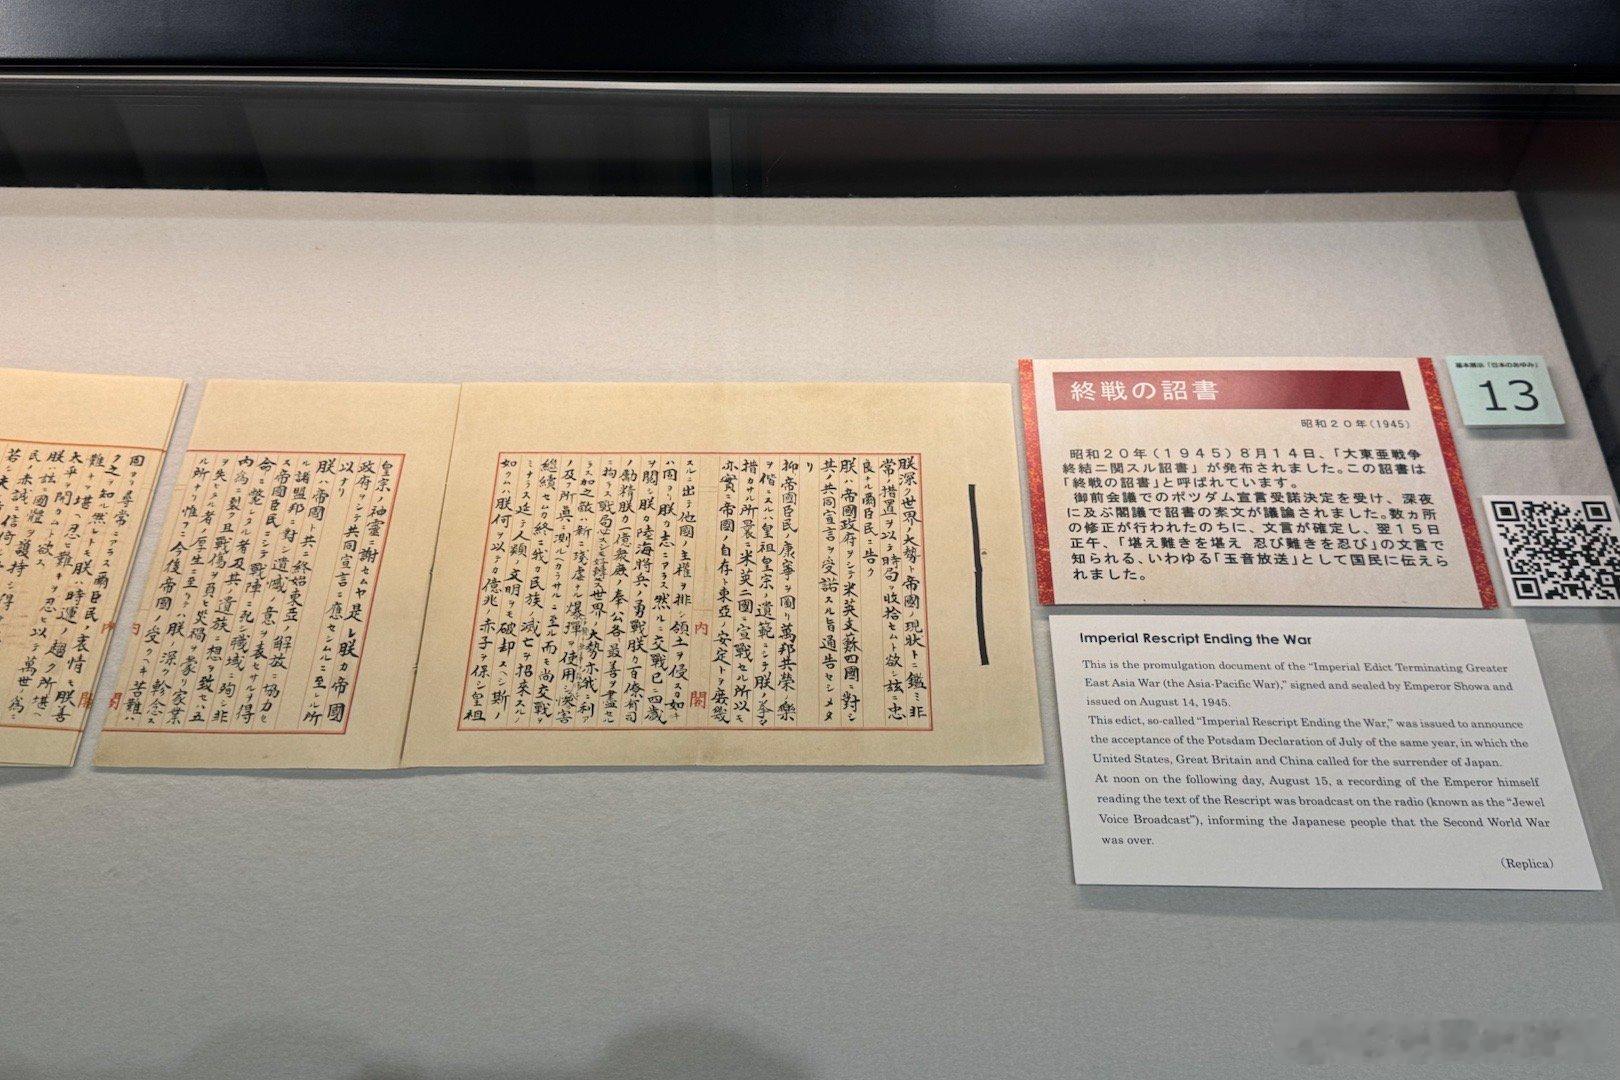 朕深ク世界ノ大勢ト帝國ノ現狀トニ鑑ミ非
常ノ措置ヲ以テ時局ヲ收拾セムト欲シ茲ニ忠
良ナル爾臣民ニ告ク
朕ハ帝國政府ヲシテ米英支蘇四國ニ對シ
其ノ共同宣言ヲ受諾スル旨通告セシメタ
リ
抑〻帝國臣民ノ康寧ヲ圖リ萬邦共榮ノ樂
ヲ偕ニスルハ皇祖皇宗ノ遺範ニシテ朕ノ拳々
措カサル所曩ニ米英二國ニ宣戰セル所以モ
亦實ニ帝國ノ自存ト東亞ノ安定トヲ庶幾
スルニ出テ他國ノ主權ヲ排シ領土ヲ侵スカ如キ
ハ固ヨリ朕カ志ニアラス然ルニ交戰已ニ四歲
ヲ閱シ朕カ陸海將兵ノ勇戰朕カ百僚有司
ノ勵精朕カ一億衆庶ノ奉公各〻最善ヲ盡セル
ニ拘ラス戰局必スシモ好轉セス世界ノ大勢亦我ニ利ア
ラス加之敵ハ新ニ殘虐ナル爆彈ヲ使用シテ
慘害
ノ及フ所眞ニ測ルヘカラサルニ至ル而モ尚交戰ヲ
繼續セムカ終ニ我カ民族ノ滅亡ヲ招來スル
ミナラス延テ人類ノ文明ヲモ破却スヘシ斯ノ
如クムハ朕何ヲ以テカ億兆ノ赤子ヲ保シ皇祖
皇宗ノ神靈ニ謝セムヤ是レ朕カ帝國
政府ヲシテ共同宣言ニ應セシムルニ至レル所
以ナリ
朕ハ帝國ト共ニ終始東亞ノ解放ニ協力セ
ル諸盟邦ニ對シ遺憾ノ意ヲ表セサルヲ得
ス帝國臣民ニシテ戰陣ニ死シ職域ニ殉シ非
命ニ斃レタル者及其ノ遺族ニ想ヲ致セハ五
內爲ニ裂ク且戰傷ヲ負ヒ災禍ヲ蒙リ家業
ヲ失ヒタル者ノ厚生ニ至リテハ朕ノ深ク軫念ス
ル所ナリ惟フニ今後帝國ノ受クヘキ苦難ハ
固ヨリ尋常ニアラス爾臣民ノ衷情モ朕善
ク之ヲ知ル然レトモ朕ハ時運ノ趨ク所堪ヘ
難キヲ堪ヘ忍ヒ難キヲ忍ヒ以テ萬世ノ爲ニ
太平ヲ開カムト欲ス
朕ハ茲ニ國體ヲ護持シ得
民ノ赤誠ニ信倚シ
若シ夫レ
內閣
內閣
終戦の詔書
昭和20年(1945)
昭和20年(1945)8月14日、「大東亜戦争
終結ニ関スル詔書」が発布されました。この詔書は
「終戦の詔書」と呼ばれています。
御前会議でのポツダム宣言受諾決定を受け、深夜
に及ぶ閣議で詔書の案文が議論されました。数ヵ所
の修正が行われたのちに、文言が確定し、翌15日
正午、「堪え難きを堪え 忍び難きを忍び」の文言で
知られる、いわゆる「玉音放送」として国民に伝えら
れました。
基本展示「日本のあゆみ」
13
Imperial Rescript Ending the War
This is the promulgation document of the “Imperial Edict Terminating Greater
East Asia War (the Asia-Pacific War),” signed and sealed by Emperor Showa and
issued on August 14, 1945.
This edict, so-called “Imperial Rescript Ending the War,” was issued to announce
the acceptance of the Potsdam Declaration of July of the same year, in which the
United States, Great Britain and China called for the surrender of Japan.
At noon on the following day, August 15, a recording of the Emperor himself
reading the text of the Rescript was broadcast on the radio (known as the “Jewel
Voice Broadcast”), informing the Japanese people that the Second World War
was over.
(Replica)